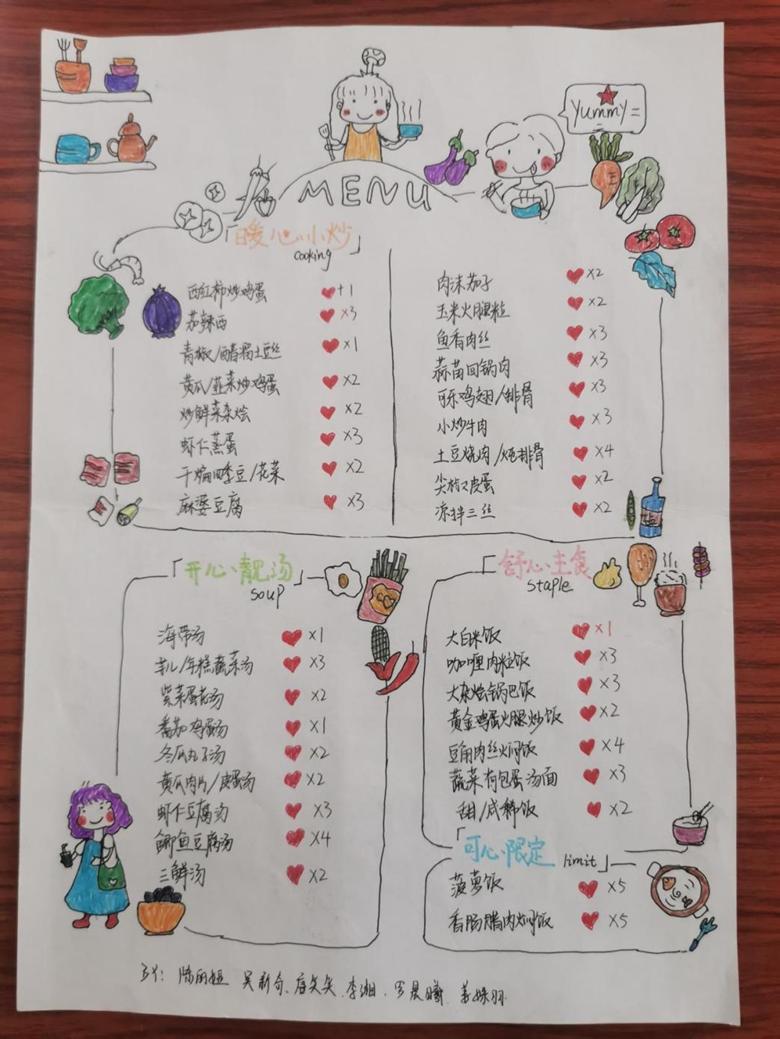 Yummy
MENU
「暖心小炒」
cooking
西红柿炒鸡蛋 ❤+1
茄辣西 ❤×3
青椒/醋溜土豆丝 ❤×1
黄瓜/韭菜炒鸡蛋 ❤×2
炒鲜菜杂烩 ❤×2
虾仁蒸蛋 ❤×3
干煸四季豆/花菜 ❤×2
麻婆豆腐 ❤×3
肉沫茄子 ❤×2
玉米火腿粒 ❤×2
鱼香肉丝 ❤×3
蒜苗回锅肉 ❤×3
可乐鸡翅/排骨 ❤×3
小炒牛肉 ❤×3
土豆烧肉/炖排骨 ❤×4
尖椒皮蛋 ❤×2
凉拌三丝 ❤×2
「开心靓汤」
soup
海带汤 ❤×1
/年糕蔬菜汤 ❤×3
紫菜蛋花汤 ❤×2
番茄鸡蛋汤 ❤×1
冬瓜丸子汤 ❤×2
黄瓜肉片/皮蛋汤 ❤×2
虾仁豆腐汤 ❤×3
鲫鱼豆腐汤 ❤×4
三鲜汤 ❤×2
「舒心主食」
staple
大白米饭 ❤×1
咖喱肉粒饭 ❤×3
大杂烩锅巴饭 ❤×3
黄金鸡蛋火腿炒饭 ❤×2
豆角肉丝焖饭 ❤×4
蔬菜荷包蛋汤面 ❤×3
甜/咸稀饭 ❤×2
「可心限定
limit」
菠萝饭 ❤×5
香肠腊肉焖饭 ❤×5
陈丽娅 吴新奇、唐笑笑、李湘、罗晨曦、姜姝羽